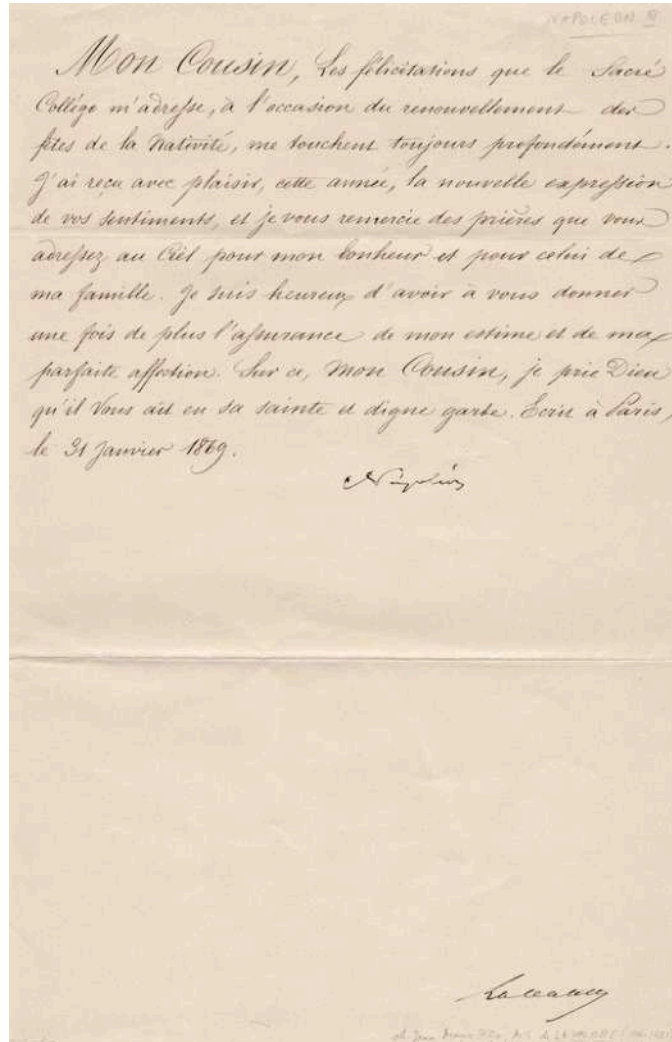 NAPOLEON III
Mon Cousin, Les félicitations que le Sacré
Collége m'adresse, à l'occasion du renouvellement des
fêtes de la Nativité, me touchent toujours profondément.
J'ai reçu avec plaisir, cette année, la nouvelle expression
de vos sentiments, et je vous remercie des prières que vous
adressez au Ciel pour mon bonheur et pour celui de
ma famille. Je suis heureux d'avoir à vous donner
une fois de plus l'assurance de mon estime et de ma
parfaite affection. Sur ce, Mon Cousin, je prie Dieu
qu'il Vous ait en sa sainte et digne garde. Ecrit à Paris,
le 31 Janvier 1869.
Napoléon